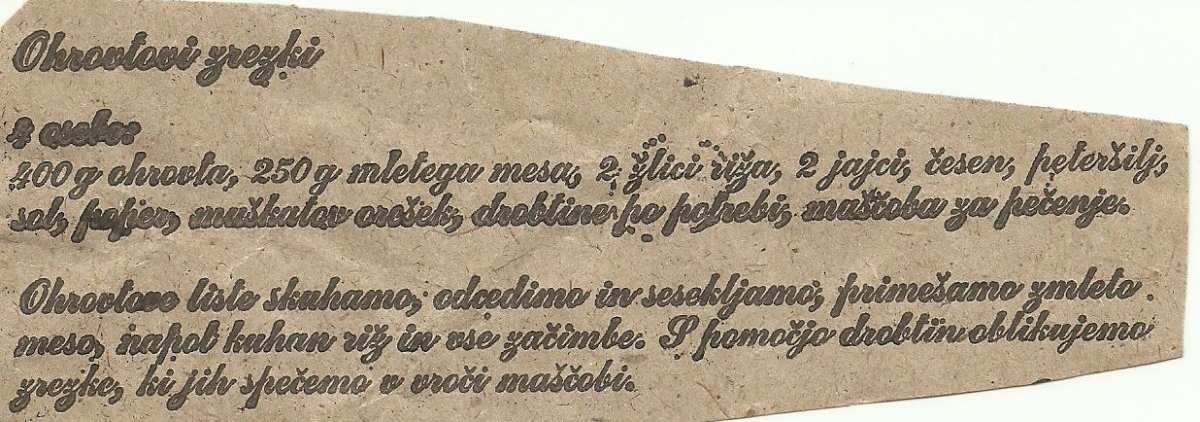 Ohrovtovi zrezki
4 osebe:
400 g ohrovta, 250 g mletega mesa, 2 žlici riža, 2 jajci, česen, peteršilj,
sol, poper, muškatov orešek, drobtine po potrebi, maščoba za pečenje.
Ohrovtove liste skuhamo, odcedimo in sesekljamo, primešamo zmleto
meso, napol kuhan riž in vse začimbe. S pomočjo drobtin oblikujemo
zrezke, ki jih spečemo v vroči maščobi.